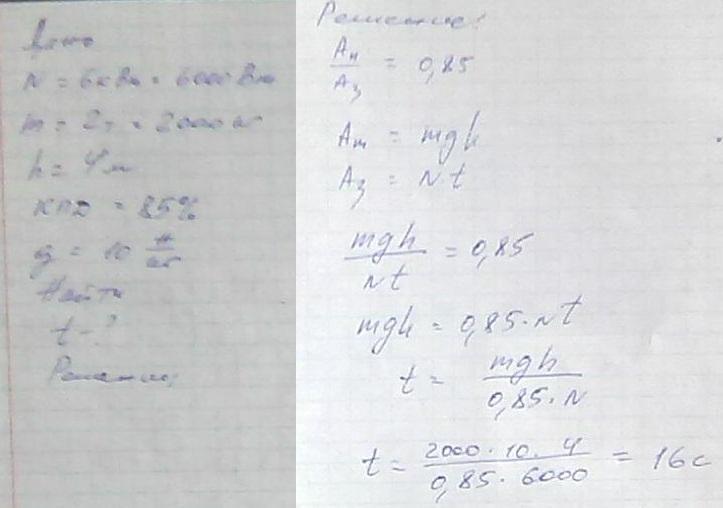 Дано
N = 6кВт = 6000 Вт
m = 2т = 2000 кг
h = 4 м
КПД = 85%
g = 10 Н/кг
Найти
t - ?
Решение:
Решение:
Aп/Aз = 0,85
Aп = mgh
Aз = N·t
mgh/Nt = 0,85
mgh = 0,85·Nt
t = mgh/0,85·N
t = 2000·10·4/0,85·6000 = 16с